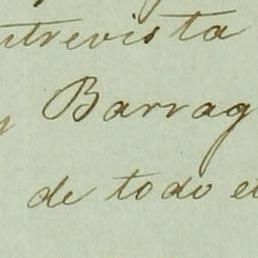 ntrevista
y Barrag
de todo e